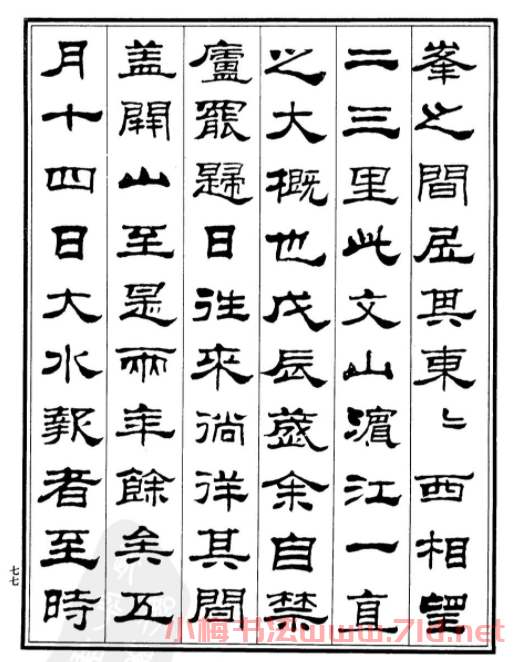 峯之間居其東〻西相望
二三里此文山濵江一直
之大概也戊辰歲余自禁
廬罷歸日徃來徜徉其間
盖開山至是兩年餘矣五
月十四日大水報者至時
七七
小梅书法www.7ld.net